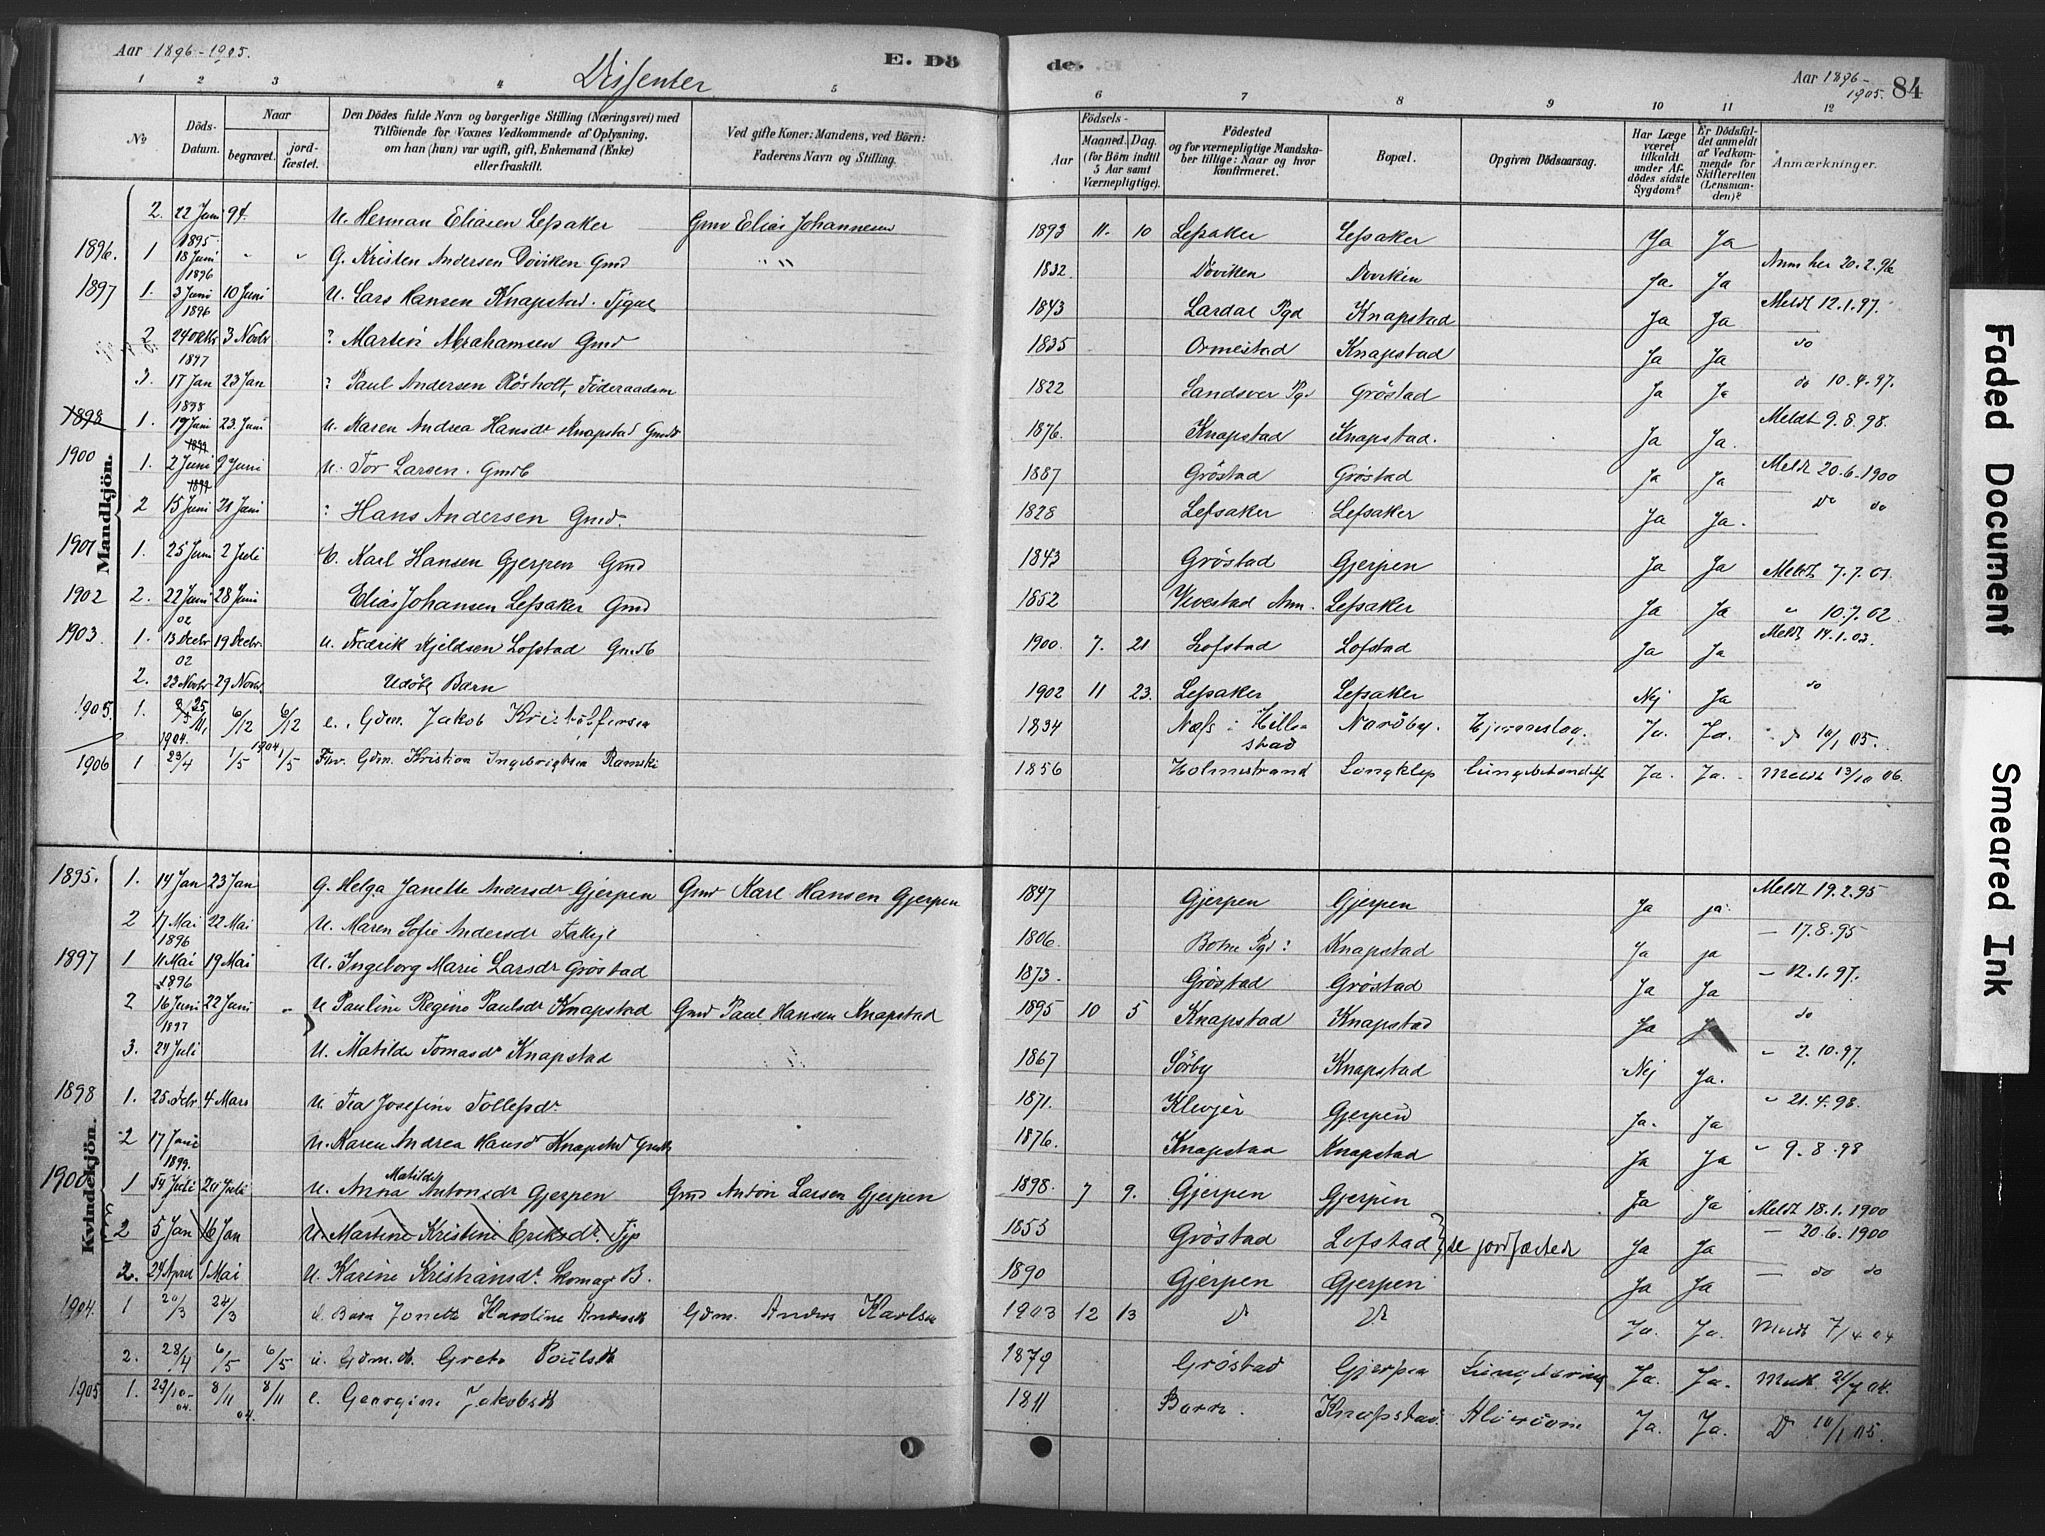 Aar 1896-1905.
Dissenter
E. Dö
de.
Aar 1896-
1905.
84
1 2 3 4 5
6 7 8 9 10 11 12
No
Döds-
Datum.
Naar
begravet.
jord-
fæstet.
Den Dödes fulde Navn og borgerlige Stilling (Næringsvei) med
Tilföiende for Voxnes Vedkommende af Oplysning,
om han (hun) var ugift, gift, Enkemand (Enke)
eller fraskilt.
Ved gifte Koner: Mandens, ved Börn:
Faderens Navn og Stilling.
Födsels-
Aar
Maaned.
Dag.
(for Börn indtil
5 Aar samt
Værnepligtige).
Födested
og for værnepligtige Mandska-
ber tillige: Naar og hvor
konfirmeret.
Bopæl.
Opgiven Dödsaarsag.
Har Læge
været
tilkaldt
under Af-
dödes sidste
Sygdom?
Er Dödsfal-
det anmeldt
af Vedkom-
mende for
Skifteretten
(Lensman-
den)?
Anmærkninger.
Mandkjön.
2. 22 Juni 94 U. Herman Eliasen Lefsaker Gmd Elias Johannesen 1893 11. 10 Lefsaker Lefsaker Ja Ja
1896. 1 1895 18 Juni " " G. Kristen Andersen Doviken Gmd " 1832 Döviken Doviken Ja. Ja Anm her 20.2.96
1897 1. 1896 3 Juni 10 Juni U. Lars Hansen Knapstad. 1843 Lardal Pgd Knapstad Ja Ja Meldt 12.1.97.
2. 1896 24 Oktbr 3 Novbr ? Martin Abrahamsen Gmd 1835 Ormestad Knapstad Ja Ja do
3. 1897 17 Jan 23 Jan ? Paul Andersen Rösholt, Föderaadsm 1822 Sandsver Pgd Gröstad Ja Ja do 10.4.97.
1898 1. 1898 17 Juni 23. Juni U. Karen Andrea Hansdr Knapstad Gmdt 1876. Knapstad Knapstad. Ja Ja. Meldt 9.8.98.
1900 1. 1899 2 Juni 9 Juni U. Tor Larsen. Gmdb 1887 Gröstad Gröstad Ja Ja Meldt 20.6.1900
2 1899 15 Juni 21 Juni ? Hans Andersen Gmd. 1828 Lefsaker Lefsaker Ja Ja. Do do
1901 1. 25 Juni 2 Juli E. Karl Hansen Gjerpen Gmd 1843 Gröstad Gjerpen Ja Ja Meldt 7.7.01.
1902 2. 22 Juni 28 Juni Elias Johansen Lefsaker Gmd 1852 Vivestad Ann. Lefsaker Ja Ja " 10.7.02.
1903. 1. 02 13 Decbr 19 Decbr U. Fredrik Kjeldsen Lofstad Gmdb 1900. 7. 21 Lofstad Lofstad Ja Ja Meldt 14.1.03.
2. 02 23 Novbr 29 Novbr Udöbt Barn 1902 11 23. Lefsaker Lefsaker Nej Ja do
1905. 1. 25/11 1904. 6/12 6/12 e. Gdm. Jakob Kristoffersen 1834 Næfs i Hille-
stad Naröby. Hjerneslag. Ja. Ja. d 10/1 05.
1906 1 23/4 1/5 1904 1/5 Fhv. Gdm. Kristian Ingebrigtsen Ramski 1856 Holmestrand Langklep Lungebetændelse Ja. Ja. Meldt 13/10 06.
Kvindekjön.
1895. 1. 14 Jan 23 Jan G. Helga Janette Andersdr Gjerpen Gmd Karl Hansen Gjerpen 1847 Gjerpen Gjerpen Ja ja. Meldt 19.2.95
2 17 Mai 22 Mai U. Maren Sofie Andersdr 1806. Botne Pgd ? Knapstad Ja ja — 17.8.95
1897 1 1896 11 Mai 19 Mai U. Ingeborg Marie Larsdr Gröstad 1873. Gröstad Gröstad Ja Ja " 12.1.97.
2 1896 16 Juni 22 Juni " U Pauline Regine Paulsdr Knapstad Gmd Paul Hansen Knapstad 1895 10 5 Knapstad Knapstad Ja J do
3. 1897 24 Juli U. Matilde Tomasdr Knapstad 1867 Sörby Knapstad Nej Ja. " 2.10.97.
1898 1. 25. Febr 4 Mars U. Tea Josefine Tollefsdr. 1871. Klevjer Gjerpen Ja. Ja " 21.4.98.
2 17 Juni U. Karen Andrea Hansdr Knapstad Gmdt 1876. Knapstad Knapstad Ja Ja " 9.8.98
1900 1 1899. 14 Juli 20 Juli U. Anna Matilde Antonsdr Gjerpen Gmd Anton Larsen Gjerpen 1898. 7 9. Gjerpen Gjerpen Ja Ja Meldt 18.1.1900
2 5 Jan 16 Jan U. Martine Kristine Eriksdr. Tjp 1855 Gröstad Lofstad de jordfæstede Ja Ja — 20.6.1900
2. 24 April 1 Mai U. Karine Kristiansdr. Skomagr B. 1890 Gjerpen Gjerpen Ja Ja — do do
1904. 1 20/3 24/3 Barn Jonette Karoline Andersdt Gdm. Anders Karlsen 1903 12 13 Do Do Ja. Ja. Meldt 7/4 04
2. 28/4 6/5 6/5 u. Gdm.dt. Grete Poulsdt 1879 Gröstad Gjerpen Lungetæring Ja. Ja. Meldt 21/7 04.
1905 1. 29/10 04. 8/11 04. 8/11 e. Georgine Jakobsdt 1811 Borre. Knapstad Alderdom Ja. Ja. Do 10/1 05.
Faded Document
Smeared Ink